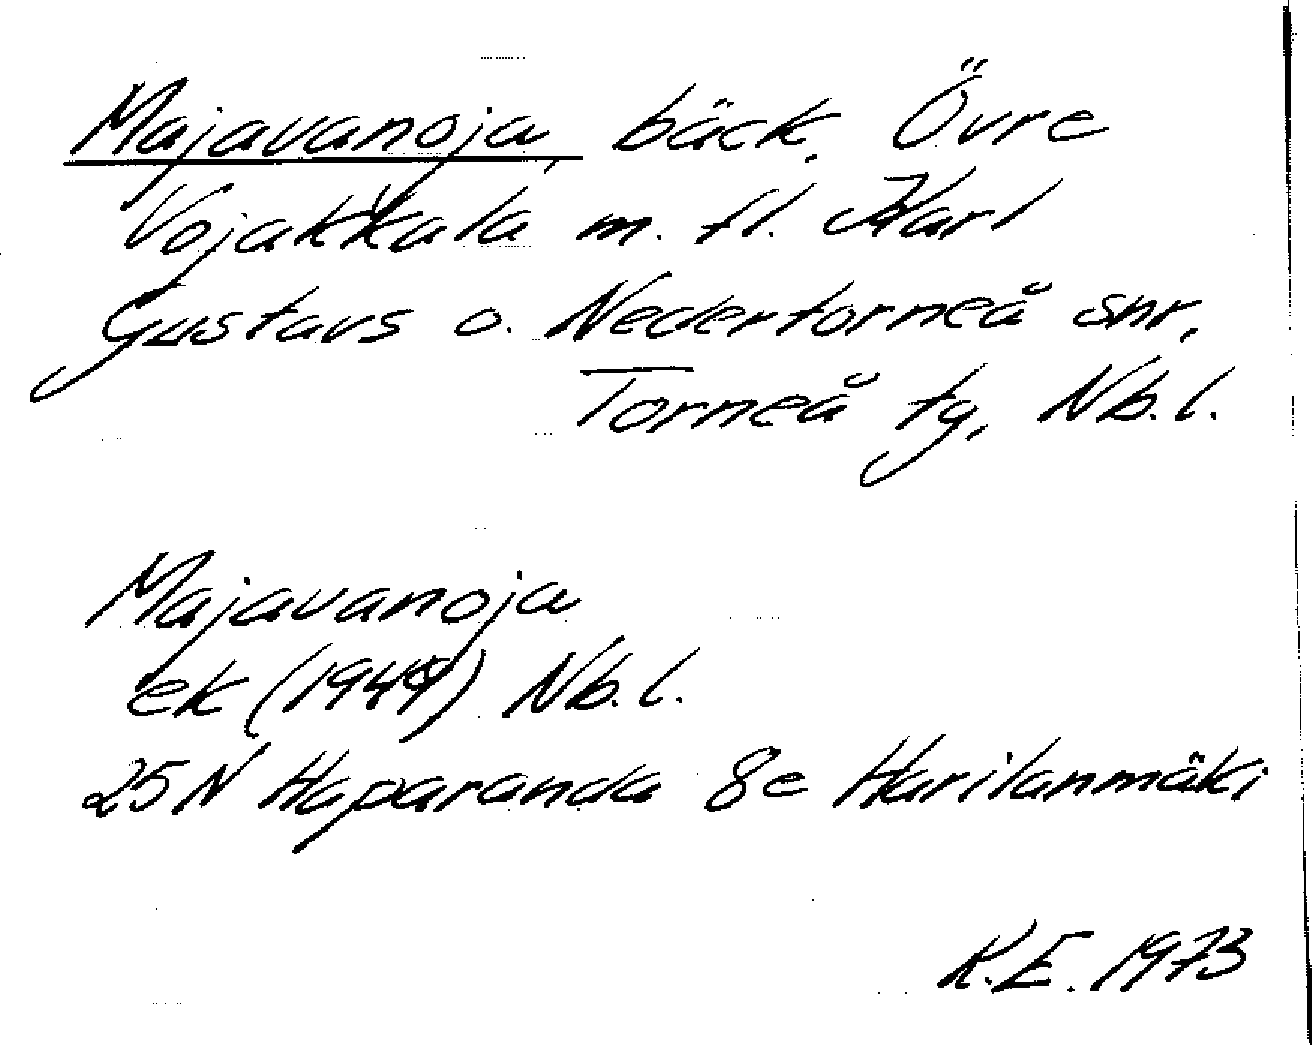 Majavanoja, bäck, Övre
Vojakkala m. fl. Karl
Gustavs o. Nedertorneå snr,
Torneå tg, Nb. l.
Majavanoja
ek (1949) Nb. l.
25N Haparanda 8e Harilanmäki
K.E. 1973